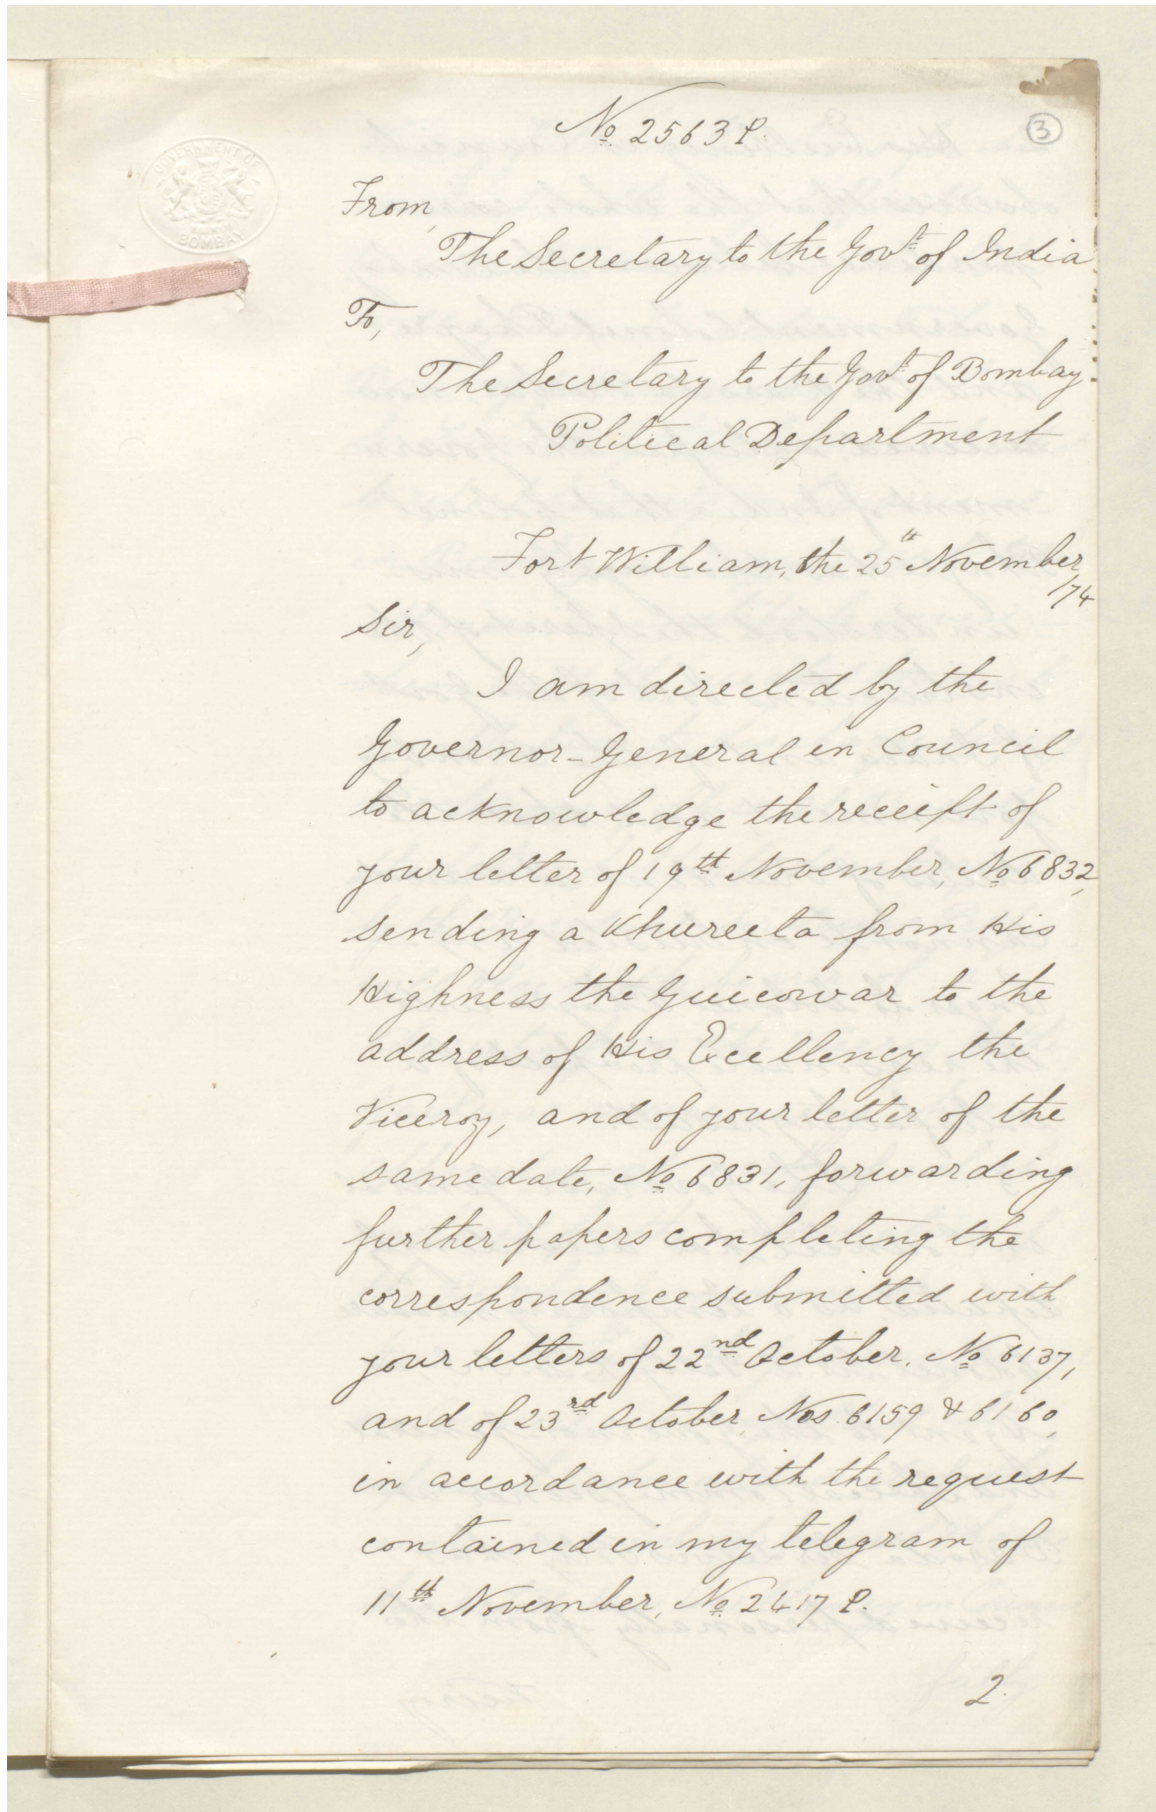 No. 2563 P.
3
GOVERNMENT OF
BOMBAY
From,
The Secretary to the Govt. of India
To,
The Secretary to the Govt. of Bombay.
Political Department
Fort William, the 25th November
/74
Sir,
I am directed by the
Governor-General in Council
to acknowledge the receipt of
your letter of 19th November, No 6832,
sending a Khureeta from His
Highness the Guicowar to the
address of His Ecellency the
Viceroy, and of your letter of the
same date, No 6831, forwarding
further papers completing the
correspondence submitted with
your letters of 22nd October, No 6137,
and of 23rd October, Nos. 6159 & 6160,
in accordance with the request
contained in my telegram of
11th November, No 2417 P.
2.